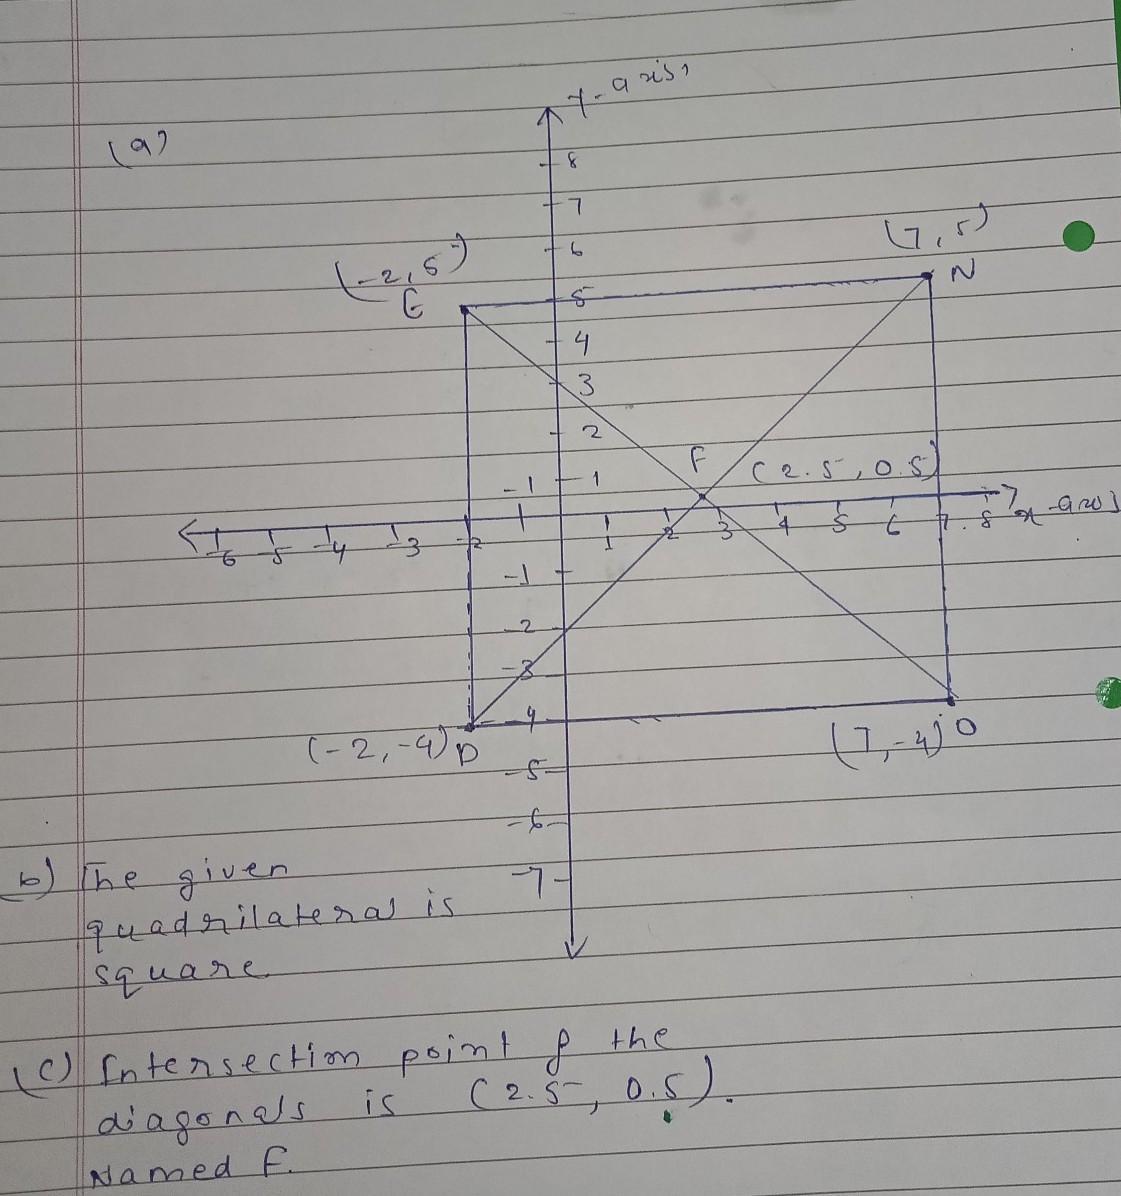 (a)
Y-axis
8
7
(7,5)
6
(-2,5)
E
N
5
4
3
2
F
(2.5,0.5)
-1
1
-6 -5 -4 -3 -2 1 2 3 4 5 6 7 8 x-axis
-1
-2
-3
-4
(-2,-4) D
(7,-4) O
-5
-6
-7
b) The given
quadrilateral is
square.
(c) Intersection point of the
diagonals is (2.5, 0.5).
Named F.